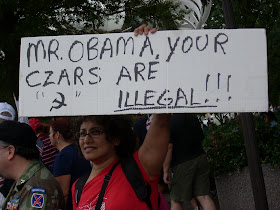 MR. OBAMA, YOUR
CZARS ARE
"2" ILLEGAL!!!